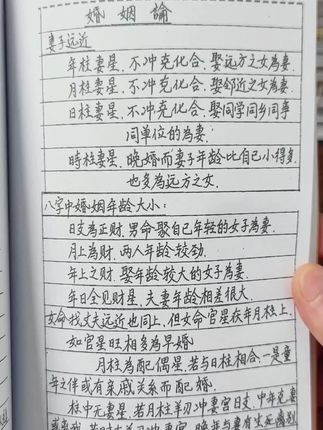 婚姻論
妻子远近
年柱妻星，不冲克化合，娶远方之女為妻.
月柱妻星，不冲克化合，娶邻近之女為妻.
日柱妻星，不冲克化合，娶同学同乡同事
同單位的為妻；
時柱妻星，晚婚而妻子年龄比自己小得多.
也多為远方之女.
八字中婚姻年龄大小：
日支為正财，男命娶自己年轻的女子為妻.
月上為财，两人年龄较劲.
年上之财，娶年龄较大的女子為妻.
年日全见财星，夫妻年龄相差很大.
女命找丈夫远近也同上，但女命官星在年月柱上，
如官星旺相多為早婚
月柱為配偶星，若与日柱相合，一是童
年之伴或有亲戚关系而配婚.
柱中无妻星，若月柱羊刃冲妻宫日支，中年克妻